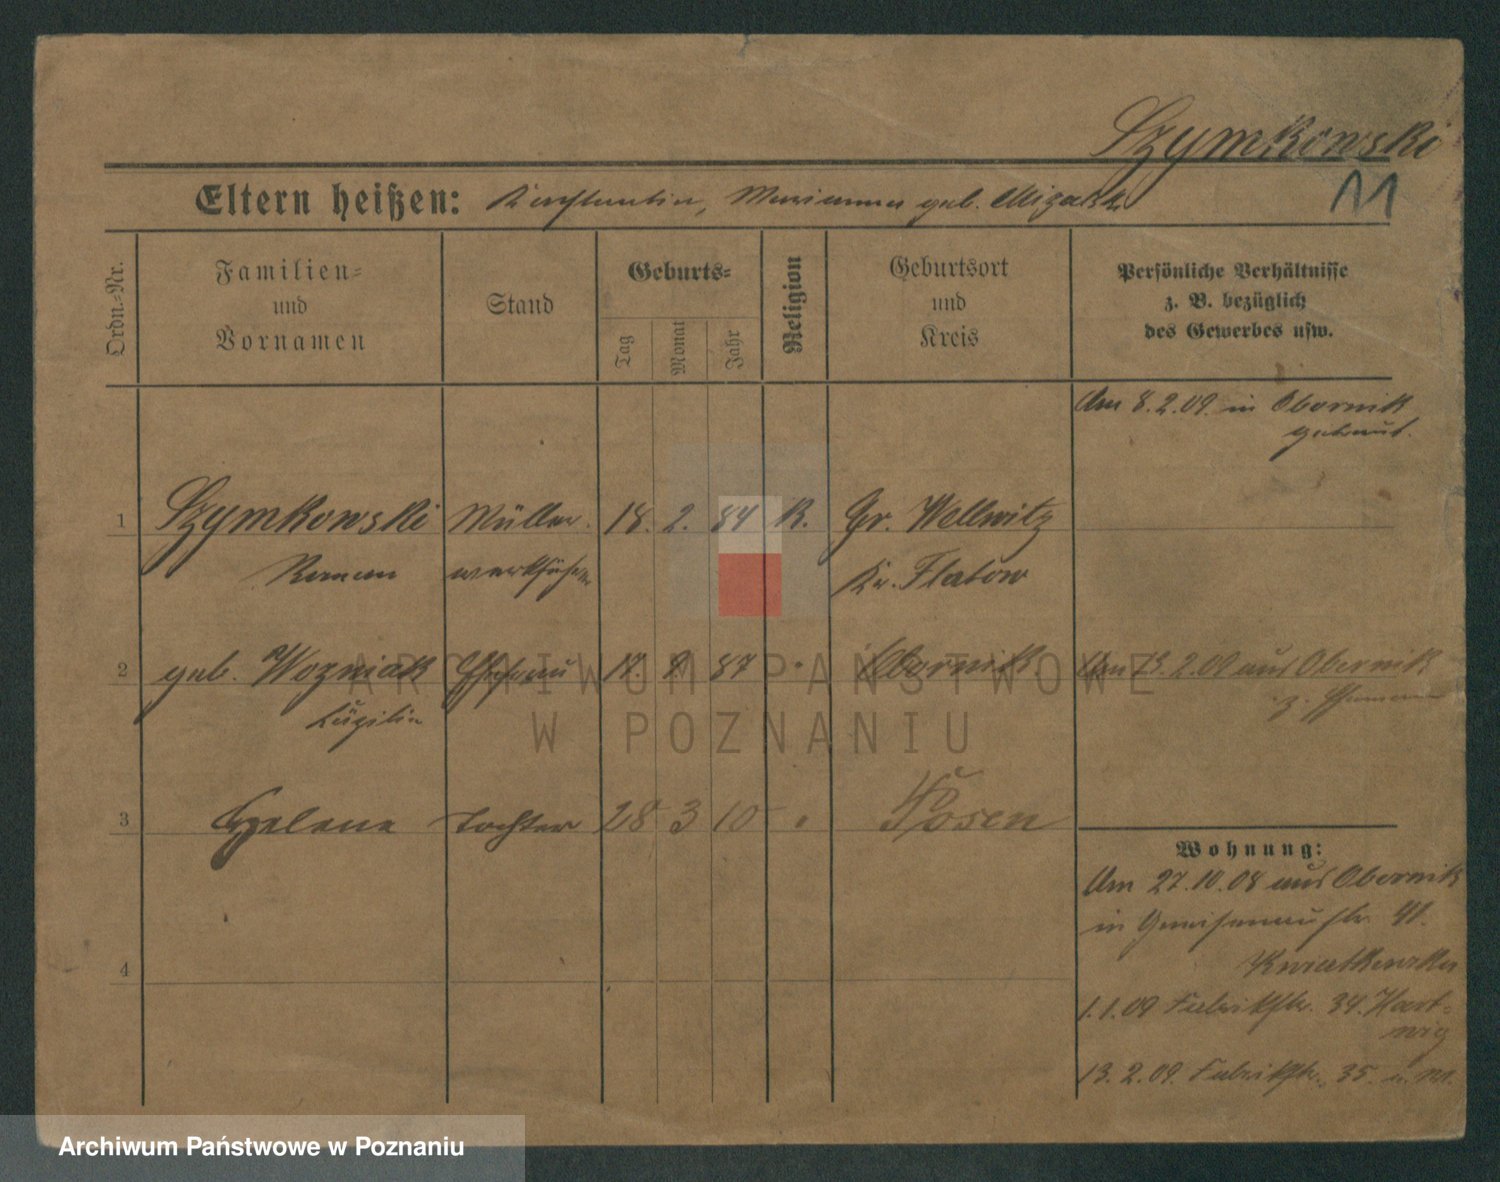 Szymkowski
11
Eltern heißen: Konstantin, Marianna geb.
Ordn.-Nr.
Familien-
und
Vornamen
Stand
Geburts-
Tag
Monat
Jahr
Religion
Geburtsort
und
Kreis
Persönliche Verhältnisse
z. B. bezüglich
des Gewerbes usw.
Am 8.2.09. in Obornik
getraut.
1 Szymkowski Müller- 18. 2. 84 K. Gr. Wellwitz
Roman werkführer Kr. Flatow
2 geb. Wozniak Ehefrau 17. 87 " Obornik Am 13.2.09 aus Obornik
Cäzilie z. Ehemann
3 Helene Tochter 28 3 10 " Posen
Wohnung:
Am 27.10.08 aus Obornik
in Gneisenaustr. 41.
Kwiatkowska
4
1.1.09 Fabrikstr. 34. Hart-
wig
13.2.09. Fabrikstr. 35.
ARCHIWUM PAŃSTWOWE
W POZNANIU
Archiwum Państwowe w Poznaniu